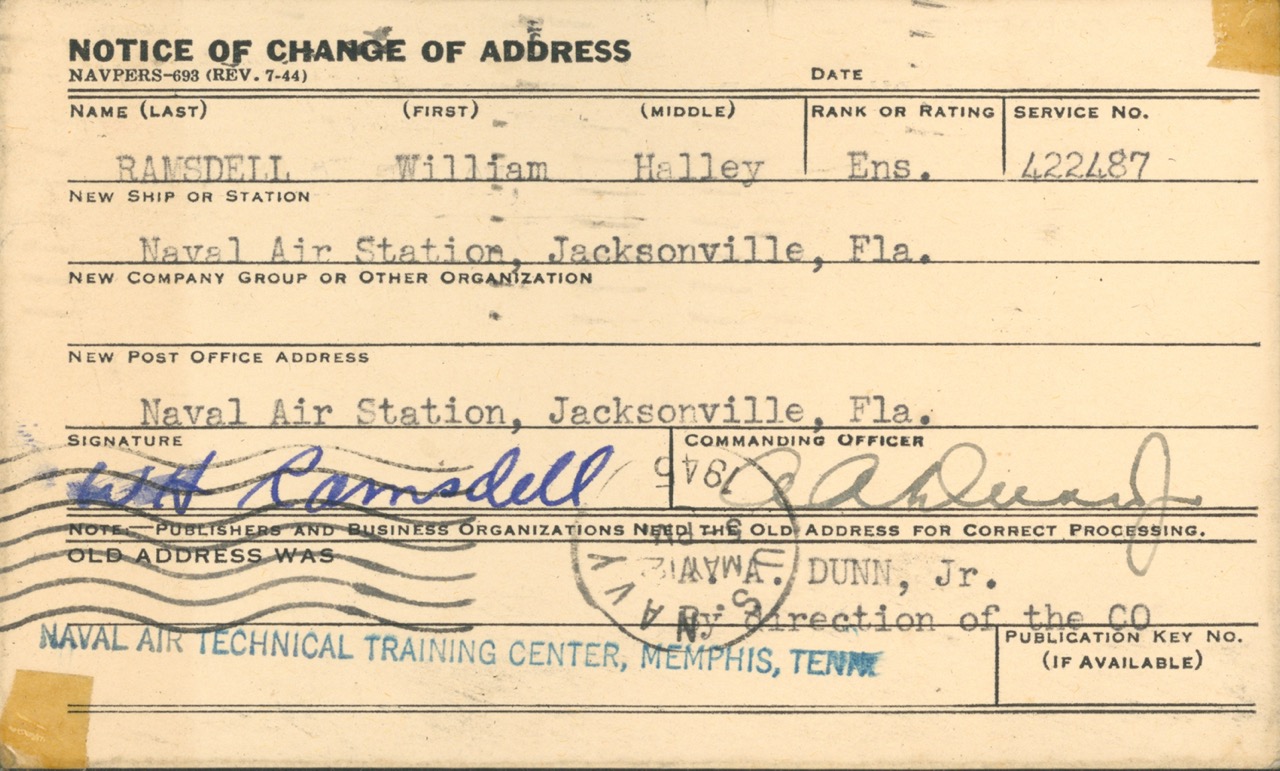 NOTICE OF CHANGE OF ADDRESS
NAVPERS-693 (REV. 7-44) DATE
NAME (LAST) (FIRST) (MIDDLE) RANK OR RATING SERVICE NO.
RAMSDELL William Halley Ens. 422487
NEW SHIP OR STATION
Naval Air Station, Jacksonville, Fla.
NEW COMPANY GROUP OR OTHER ORGANIZATION
NEW POST OFFICE ADDRESS
Naval Air Station, Jacksonville, Fla.
SIGNATURE COMMANDING OFFICER
WH Ramsdell
1945
NOTE—PUBLISHERS AND BUSINESS ORGANIZATIONS NEED THE OLD ADDRESS FOR CORRECT PROCESSING.
OLD ADDRESS WAS
DUNN, Jr.
U.S. NAVY
By direction of the CO
NAVAL AIR TECHNICAL TRAINING CENTER, MEMPHIS, TENN
PUBLICATION KEY NO.
(IF AVAILABLE)